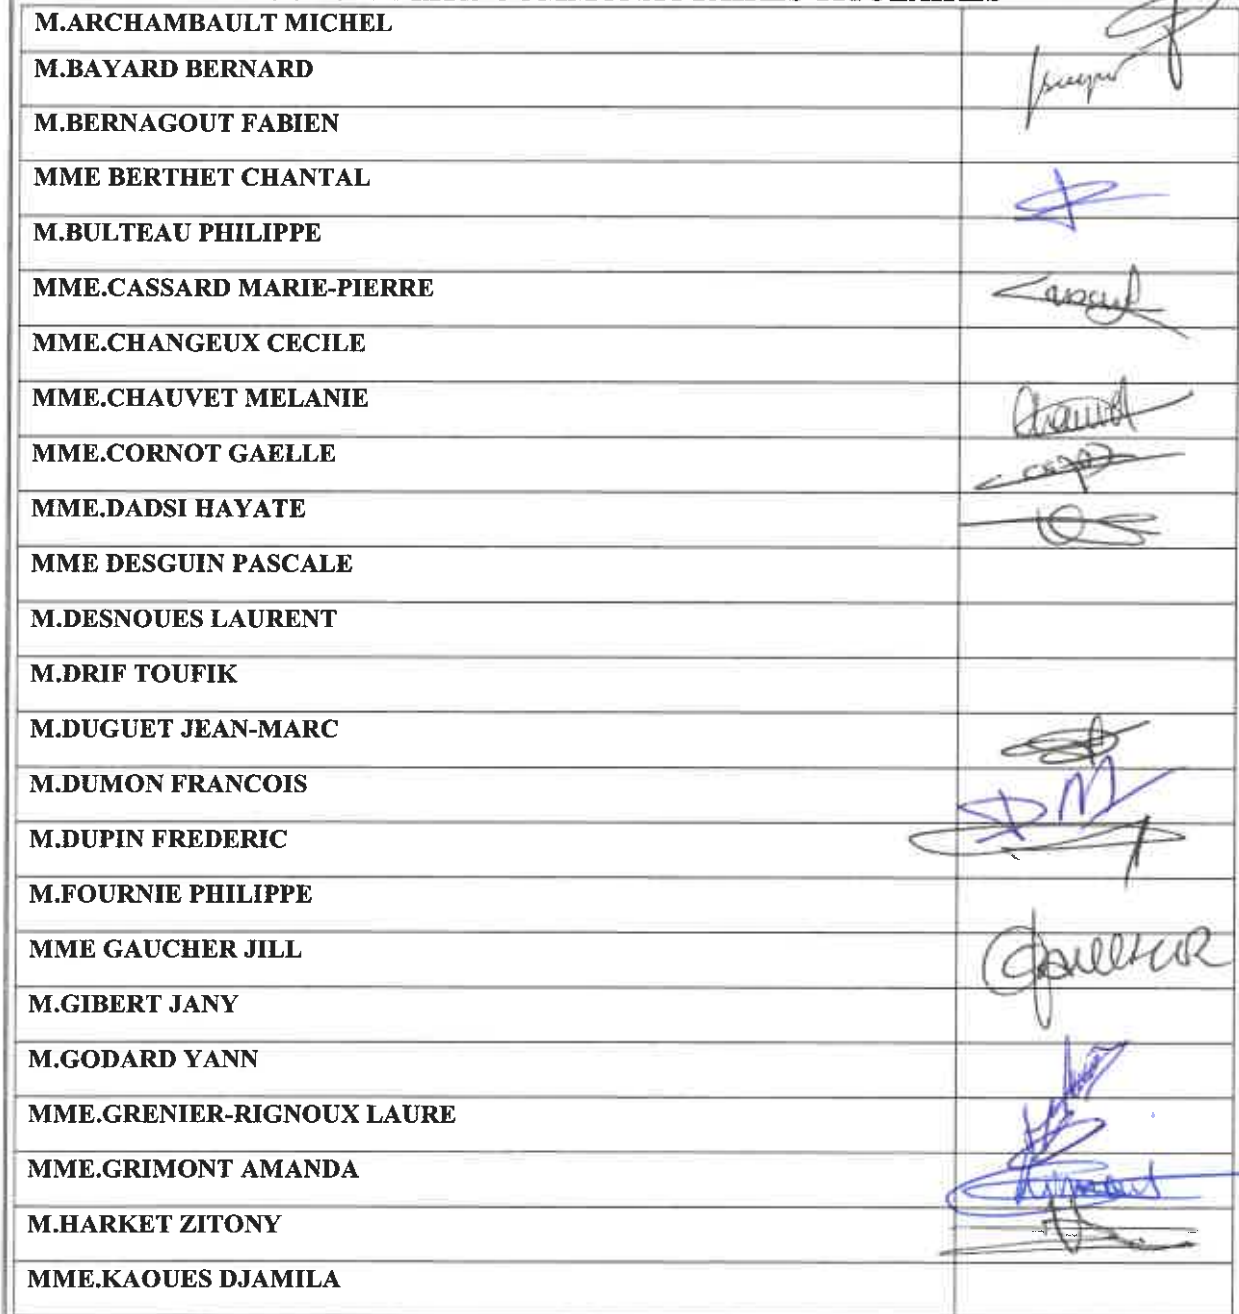 M.ARCHAMBAULT MICHEL
M.BAYARD BERNARD
M.BERNAGOUT FABIEN
MME BERTHET CHANTAL
M.BULTEAU PHILIPPE
MME.CASSARD MARIE-PIERRE
MME.CHANGEUX CECILE
MME.CHAUVET MELANIE
MME.CORNOT GAELLE
MME.DADSI HAYATE
MME DESGUIN PASCALE
M.DESNOUES LAURENT
M.DRIF TOUFIK
M.DUGUET JEAN-MARC
M.DUMON FRANCOIS
M.DUPIN FREDERIC
M.FOURNIE PHILIPPE
MME GAUCHER JILL
M.GIBERT JANY
M.GODARD YANN
MME.GRENIER-RIGNOUX LAURE
MME.GRIMONT AMANDA
M.HARKET ZITONY
MME.KAOUES DJAMILA